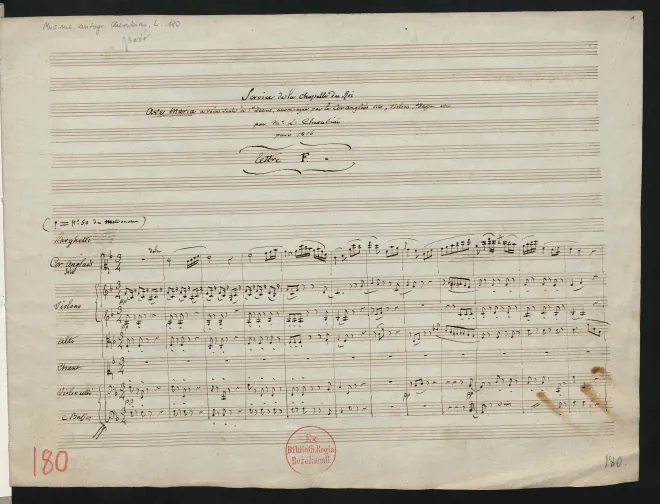 Mus. ms. autogr. Cherubini, L. 180
1
Service de la Chapelle du Roi
Ave Maria à voix seule de 1er Dessus accompagné par le Cor anglais
par Mr. L. Cherubini
paris 1816
Lettre F.
( = No. 50 du métronome)
Larghetto
Cor anglais
Solo
dolce
Violons
Alti
Chant
Violoncelli
C. Basso
pp
pp
pp
180
Ex
Biblioth. Regia
Berolinensi.
180.